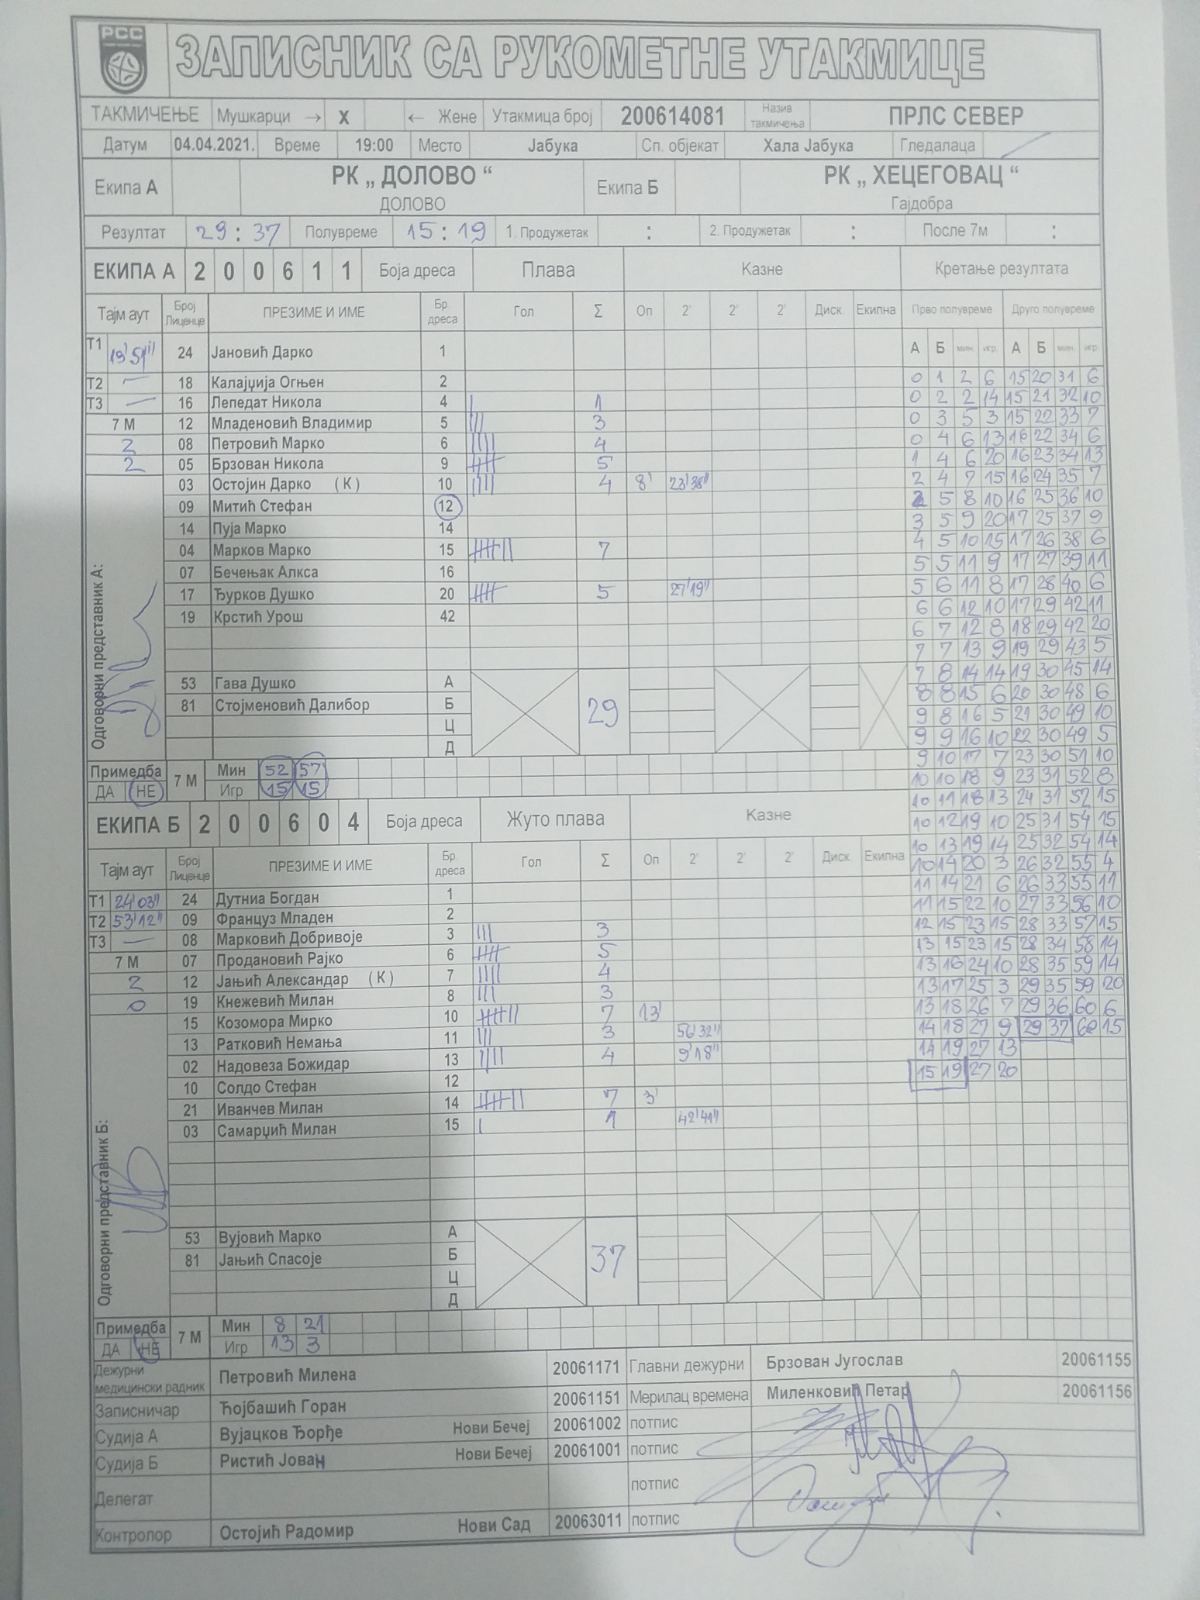 РСС
ЗАПИСНИК СА РУКОМЕТНЕ УТАКМИЦЕ
ТАКМИЧЕЊЕ Мушкарци → X ← Жене Утакмица број 200614081 Назив такмичења ПРЛС СЕВЕР
Датум 04.04.2021. Време 19:00 Место Јабука Сп. објекат Хала Јабука Гледалаца
Екипа А РК „ ДОЛОВО “ Екипа Б РК „ ХЕЦЕГОВАЦ “
ДОЛОВО Гајдобра
Резултат 29 : 37 Полувреме 15 : 19 1. Продужетак : 2. Продужетак : После 7м :
ЕКИПА А 2 0 0 6 1 1 Боја дреса Плава Казне Кретање резултата
Тајм аут Број Лиценце ПРЕЗИМЕ И ИМЕ Бр. дреса Гол Σ Оп 2' 2' 2' Диск. Екипна Прво полувреме Друго полувреме
Т1 19'51" 24 Јановић Дарко 1 А Б мин. игр. А Б мин. игр.
Т2 — 18 Калајџија Огњен 2 0 1 2 6 15 20 31 6
Т3 — 16 Лепедат Никола 4 | 1 0 2 2 14 15 21 32 10
7 М 12 Младеновић Владимир 5 ||| 3 0 3 5 3 15 22 33 7
2 08 Петровић Марко 6 |||| 4 0 4 6 13 16 22 34 6
2 05 Брзован Никола 9 5 1 4 6 20 16 23 34 13
03 Остојин Дарко (К) 10 |||| 4 8' 23'38" 2 4 7 15 16 24 35 7
09 Митић Стефан 12 2 5 8 10 16 25 36 10
14 Пуја Марко 14 3 5 9 20 17 25 37 9
04 Марков Марко 15 7 4 5 10 15 17 26 38 6
07 Бечењак Алкса 16 5 5 11 9 17 27 39 11
17 Ђурков Душко 20 5 27'19" 5 6 11 8 17 28 40 6
19 Крстић Урош 42 6 6 12 10 17 29 42 11
6 7 12 8 18 29 42 20
7 7 13 9 19 29 43 5
7 8 14 14 19 30 45 14
53 Гава Душко А 29 8 8 15 6 20 30 48 6
81 Стојменовић Далибор Б 9 8 16 5 21 30 49 10
Ц 9 9 16 10 22 30 49 5
Д 9 10 17 7 23 30 51 10
Одговорни представник А:
Примедба 7 М Мин 52 57 10 10 18 9 23 31 52 8
ДА НЕ Игр 15 15 10 11 18 13 24 31 52 15
ЕКИПА Б 2 0 0 6 0 4 Боја дреса Жуто плава Казне 10 12 19 10 25 31 54 15
10 13 19 14 25 32 54 14
Тајм аут Број Лиценце ПРЕЗИМЕ И ИМЕ Бр. дреса Гол Σ Оп 2' 2' 2' Диск. Екипна 10 14 20 3 26 32 55 4
Т1 24'03" 24 Дутниа Богдан 1 11 14 21 6 26 33 55 11
Т2 53'12" 09 Француз Младен 2 11 15 22 10 27 33 56 10
Т3 — 08 Марковић Добривоје 3 ||| 3 12 15 23 15 28 33 57 15
7 М 07 Продановић Рајко 6 5 13 15 23 15 28 34 58 14
2 12 Јањић Александар (К) 7 |||| 4 13 16 24 10 28 35 59 14
0 19 Кнежевић Милан 8 ||| 3 13 17 25 3 29 35 59 20
15 Козомора Мирко 10 7 13' 13 18 26 7 29 36 60 6
13 Ратковић Немања 11 ||| 3 56'32" 14 18 27 9 29 37 60 15
02 Надовеза Божидар 13 |||| 4 9'18" 14 19 27 13
10 Солдо Стефан 12 15 19 27 20
21 Иванчев Милан 14 7 3'
03 Самарџић Милан 15 | 1 42'41"
53 Вујовић Марко А 37
81 Јањић Спасоје Б
Ц
Д
Одговорни представник Б:
Примедба 7 М Мин 8 21
ДА НЕ Игр 13 3
Дежурни медицински радник Петровић Милена 20061171 Главни дежурни Брзован Југослав 20061155
Записничар Ћојбашић Горан 20061151 Мерилац времена Миленковић Петар 20061156
Судија А Вујацков Ђорђе Нови Бечеј 20061002 потпис
Судија Б Ристић Јован Нови Бечеј 20061001 потпис
Делегат потпис
Контролор Остојић Радомир Нови Сад 20063011 потпис